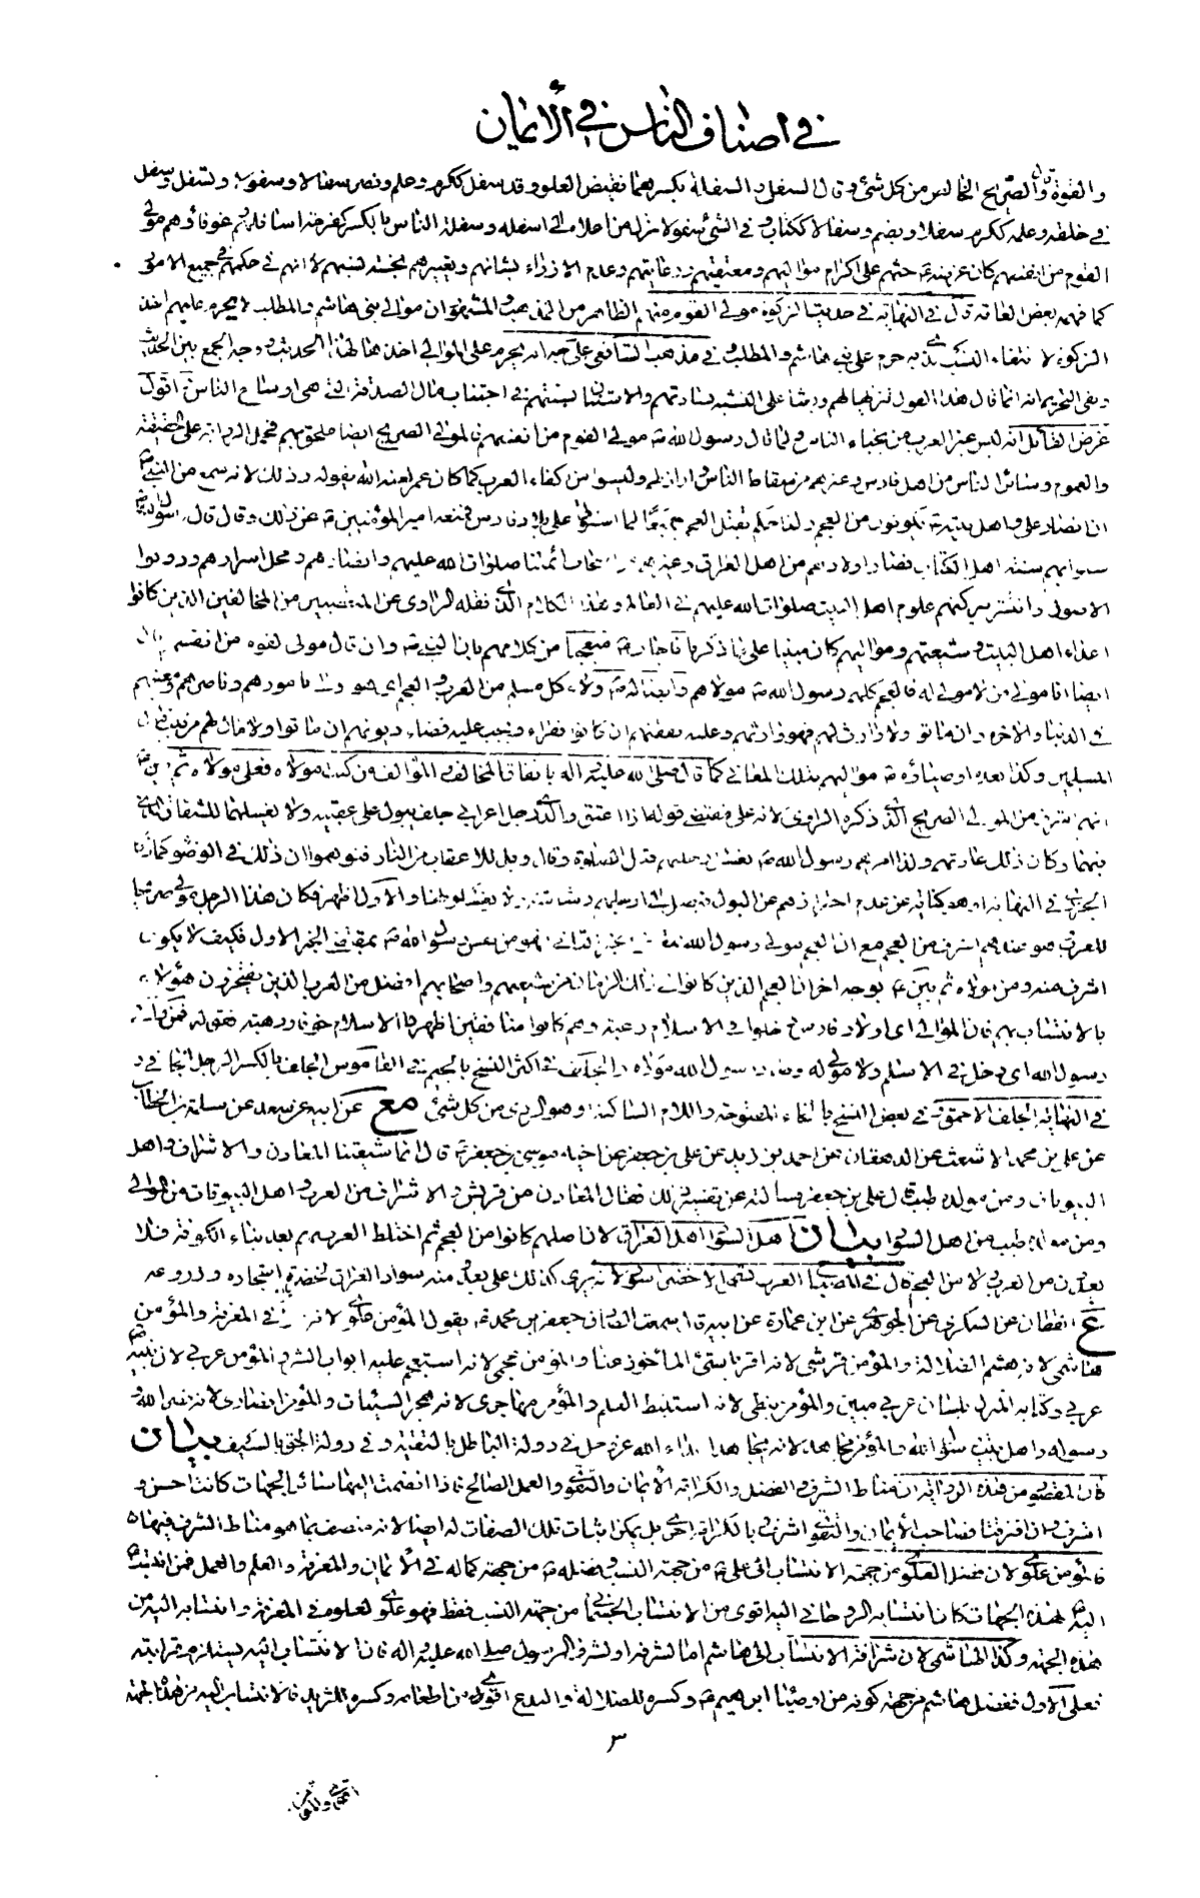 في اصناف الناس في الأيمان
والقوة والصريح الخالص من كل شئ وقال السفل والسفلة بكسرهما نقيض العلو وقد سفل ككرم وعلم ونصر سفالا وسفولا وتسفل وسفل
في خلقه وعلمه ككرم سفلا ويضم وسفالا ككتاب وفي الشئ سفولا نزل من اعلاه الى اسفله وسفلة الناس بالكسر كفرحة اسافلهم وغوغائهم مولى
القوم من انفسهم كان حثهم على اكرام مواليهم ومعتقيهم ورعايتهم وعدم الازراء بشانهم وتعييرهم بخسة نسبهم لانهم في حكمهم في جميع الامور
كما فهمه بعض العامة قال في النهاية في حديث الزكوة مولى القوم منهم الظاهر من المذهب والمشهور ان موالي بني هاشم والمطلب لا يحرم عليهم اخذ
الزكوة لانتفاء النسب الذي به حرم على بني هاشم والمطلب وفي مذهب الشافعي على وجه انه يحرم على الموالي اخذها لهذا الحديث ووجه الجمع بين الحديث
ونفي التحريم انه انما قال هذا القول تنزيها لهم وبعثا على التشبه بسادتهم والاستنان بسنتهم في اجتناب مال الصدقة التي هي اوساخ الناس اقول
غرض القائل انه ليس غير العرب من نجباء الناس ولما قال رسول الله ص مولى القوم من انفسهم فالموالي الصريح ايضا ملحق بهم فحمل الرواية على الحقيقة
والعموم وسائر الناس من اهل فارس وغيرهم من سقاط الناس واراذلهم وليسوا من كفاء العرب كما كان عمر لعنه الله يقوله وذلك لانه سمع من النبي ص
ان انصار علي واهل بيته يكونون من العجم ولذا حكم بقتل العجم جميعا لما استولى على بلاد فارس فمنعه امير المؤمنين ع عن ذلك وقال قال رسول الله ص
سنوا بهم سنة اهل الكتاب فصار اولادهم من اهل العراق وغيرهم اصحاب ائمتنا صلوات الله عليهم وانصارهم ومحل اسرارهم ودونوا
الاصول وانتشر ببركتهم علوم اهل البيت صلوات الله عليهم في العالم وهذا الكلام الذي نقله الراوي عن المتعصبين من المخالفين الذين كانوا
اعداء اهل البيت وشيعتهم ومواليهم كان مبنيا على ما ذكرنا فاجاب ع متعجبا من كلامهم بان النبي ص وان قال مولى القوم من انفسهم قال
ايضا انا مولى من لا مولى له فالعجم كلهم رسول الله ص مولاهم وايضا له ص ولاء كل مسلم من العرب والعجم اي هو ولي امورهم وناصرهم ومعينهم
في الدنيا والاخرة وان ماتوا ولا وارث لهم فهو وارثهم وعليه نفقتهم ان كانوا فقراء ويجب عليه قضاء ديونهم ان ماتوا ولا مال لهم من بيت مال
المسلمين وكذا بعده اوصياؤه ع مواليهم بتلك المعاني كما قال صلى الله عليه واله باتفاق المخالف والمؤالف من كنت مولاه فعلي مولاه ثم بين ع
انهم اشرف من المولى الصريح الذي ذكره الراوي لانه على مقتضى قوله اذا اعتق والد رجل اعرابي جلف يبول على عقبيه ولا يغسلهما للشقاق الذي
فيهما وكان ذلك عادتهم ولذا امرهم رسول الله ص بغسل ارجلهم قبل الصلوة وقال ويل للاعقاب من النار فتوهموا ان ذلك في الوضوء كما ذكره
الجزري في النهاية او هو كناية عن عدم احترازهم عن البول فيصل الى ارجلهم رشاشته ولا يغسلونها والاول اظهر فكان هذا الرجل مولى صريحا
للعرب هو عندهم اشرف من العجم مع ان العجم مولى رسول الله بمقتضى الخبر الاول فكيف لا يكون
اشرف منه ومن مولاه ثم بين ع بوجه اخر ان العجم الذين كانوا في ذلك الزمان من شيعتهم واصحابهم افضل من العرب الذين يفتخرون هؤلاء
بالانتساب بهم فان الموالي اي اولاد فارس دخلوا في الاسلام رغبة وهم كانوا منافقين اظهروا الاسلام خوفا ورهبة فقوله فمن والى
رسول الله اي دخل في الاسلام ولا مولى له ومن رسول الله مولاه والجلف في اكثر النسخ بالجيم في القاموس الجلف بالكسر الرجل الجافي و
في النهاية الجلف الاحمق وفي بعض النسخ بالخاء المفتوحة واللام الساكنة وهو الردي من كل شئ مع عن ابيه عن سعد عن سلمة بن الخطاب
عن علي بن محمد الاشعث عن الدهقان عن احمد بن زيد عن علي بن جعفر عن اخيه موسى بن جعفر ع قال انما شيعتنا المعادن والاشراف واهل
البيوتات ومن مولده طيب قال علي بن جعفر فسالته عن تفسير ذلك فقال المعادن من قريش والاشراف من العرب واهل البيوتات من الموالي
ومن مولده طيب من اهل السواد بيان اهل السواد اهل العراق لان اصلهم كانوا من العجم ثم اختلط العرب بهم بعد بناء الكوفة فلا
يعدون من العرب ولا من العجم قال في المصباح العرب تسمي الاخضر اسود لانه يرى كذلك على بعد ومنه سواد العراق لخضرة اشجاره وزروعه
ع القطان عن السكري عن الجوهري عن ابن عمارة عن ابيه قال سمعت الصادق جعفر بن محمد ع يقول المؤمن علوي لانه علا في المعرفة والمؤمن
هاشمي لانه هشم الضلالة والمؤمن قرشي لانه اقر بالشئ المأخوذ عنا والمؤمن عجمي لانه استعجم عليه ابواب الشر والمؤمن عربي لان نبيه ص
عربي وكتابه المنزل بلسان عربي مبين والمؤمن نبطي لانه استنبط العلم والمؤمن مهاجري لانه هجر السيئات والمؤمن انصاري لانه نصر الله و
رسوله واهل بيت رسول الله والمؤمن مجاهد لانه يجاهد اعداء الله عز وجل في دولة الباطل بالتقية وفي دولة الحق بالسيف بيان
كان المقصود من هذه الرواية ان مناط الشرف والفضل والكرامة الأيمان والتقوى والعمل الصالح فاذا انضمت اليها سائر الجهات كانت احسن و
اشرف وان افترقتا فصاحب الأيمان والتقوى اشرف بالكرامة احرى بل يمكن اثبات تلك الصفات له ايضا لانه متصف بما هو مناط الشرف فيها
فالمؤمن علوي لان فضل العلوي من جهة الانتساب الى علي ع من جهة النسب وفضله ع من جهة كماله في الأيمان والمعرفة والعلم والعمل فمن انتسب
اليه ع لهذه الجهات كان انتسابه الروحاني اليه اقوى من الانتساب الجسماني من جهة النسب فقط فهو علوي لعلوه في المعرفة وانتسابه اليه من
هذه الجهة وكذا الهاشمي لان شرافة الانتساب الى هاشم اما لشرفه او لشرف الرسول صلى الله عليه واله فان الانتساب اليه يستلزم قرابته
فعلى الاول ففضل هاشم من جهة كونه من اوصياء ابرهيم ع وكسره للضلالة والبدع اقوى من اطعامه وكسره للثريد فالانتساب اليه من هذه الجهة
٣
اقوى وللمؤمن